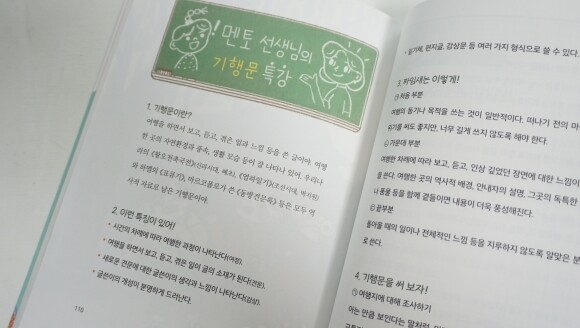 멘토 선생님의
기행문 특강
1. 기행문이란?
여행을 하면서 보고, 듣고, 겪은 일과 느낌 등을 쓴 글이야. 여행
한 곳의 자연환경과 풍속, 생활 모습 등이 잘 나타나 있어. 우리나
라의 《왕오천축국전》(신라시대, 혜초), 《열하일기》(조선시대, 박지원)
와 하멜의 《표류기》, 마르코폴로가 쓴 《동방견문록》 등은 모두 역
사적 자료로 남은 기행문이야.
2. 이런 특징이 있어!
• 시간의 차례에 따라 여행한 과정이 나타난다(여정).
• 여행을 하면서 보고, 듣고, 겪은 일이 글의 소재가 된다(견문).
• 새로운 견문에 대한 글쓴이의 생각과 느낌이 나타난다(감상).
• 글쓴이의 개성이 분명하게 드러난다.
118
• 일기체, 편지글, 감상문 등 여러 가지 형식으로 쓸 수 있다.
3. 짜임새는 이렇게!
① 처음 부분
여행의 동기나 목적을 쓰는 것이 일반적이다. 떠나기 전의 마
위기를 써도 좋지만, 너무 길게 쓰지 않도록 해야 한다.
② 가운데 부분
여행한 차례에 따라 보고, 듣고, 인상 깊었던 장면에 대한 느낌이
다. 쓰는. 여행한 곳의 역사적 배경, 안내자의 설명, 그곳의 독특한
나 풍물 등을 함께 곁들이면 내용이 더욱 풍성해진다.
③ 끝부분
돌아올 때의 일이나 전체적인 느낌 등을 지루하지 않도록 알맞은 분
로 쓴다.
4. 기행문을 써 보자!
① 여행지에 대해 조사하기
아는 만큼 보인다는 말처럼,